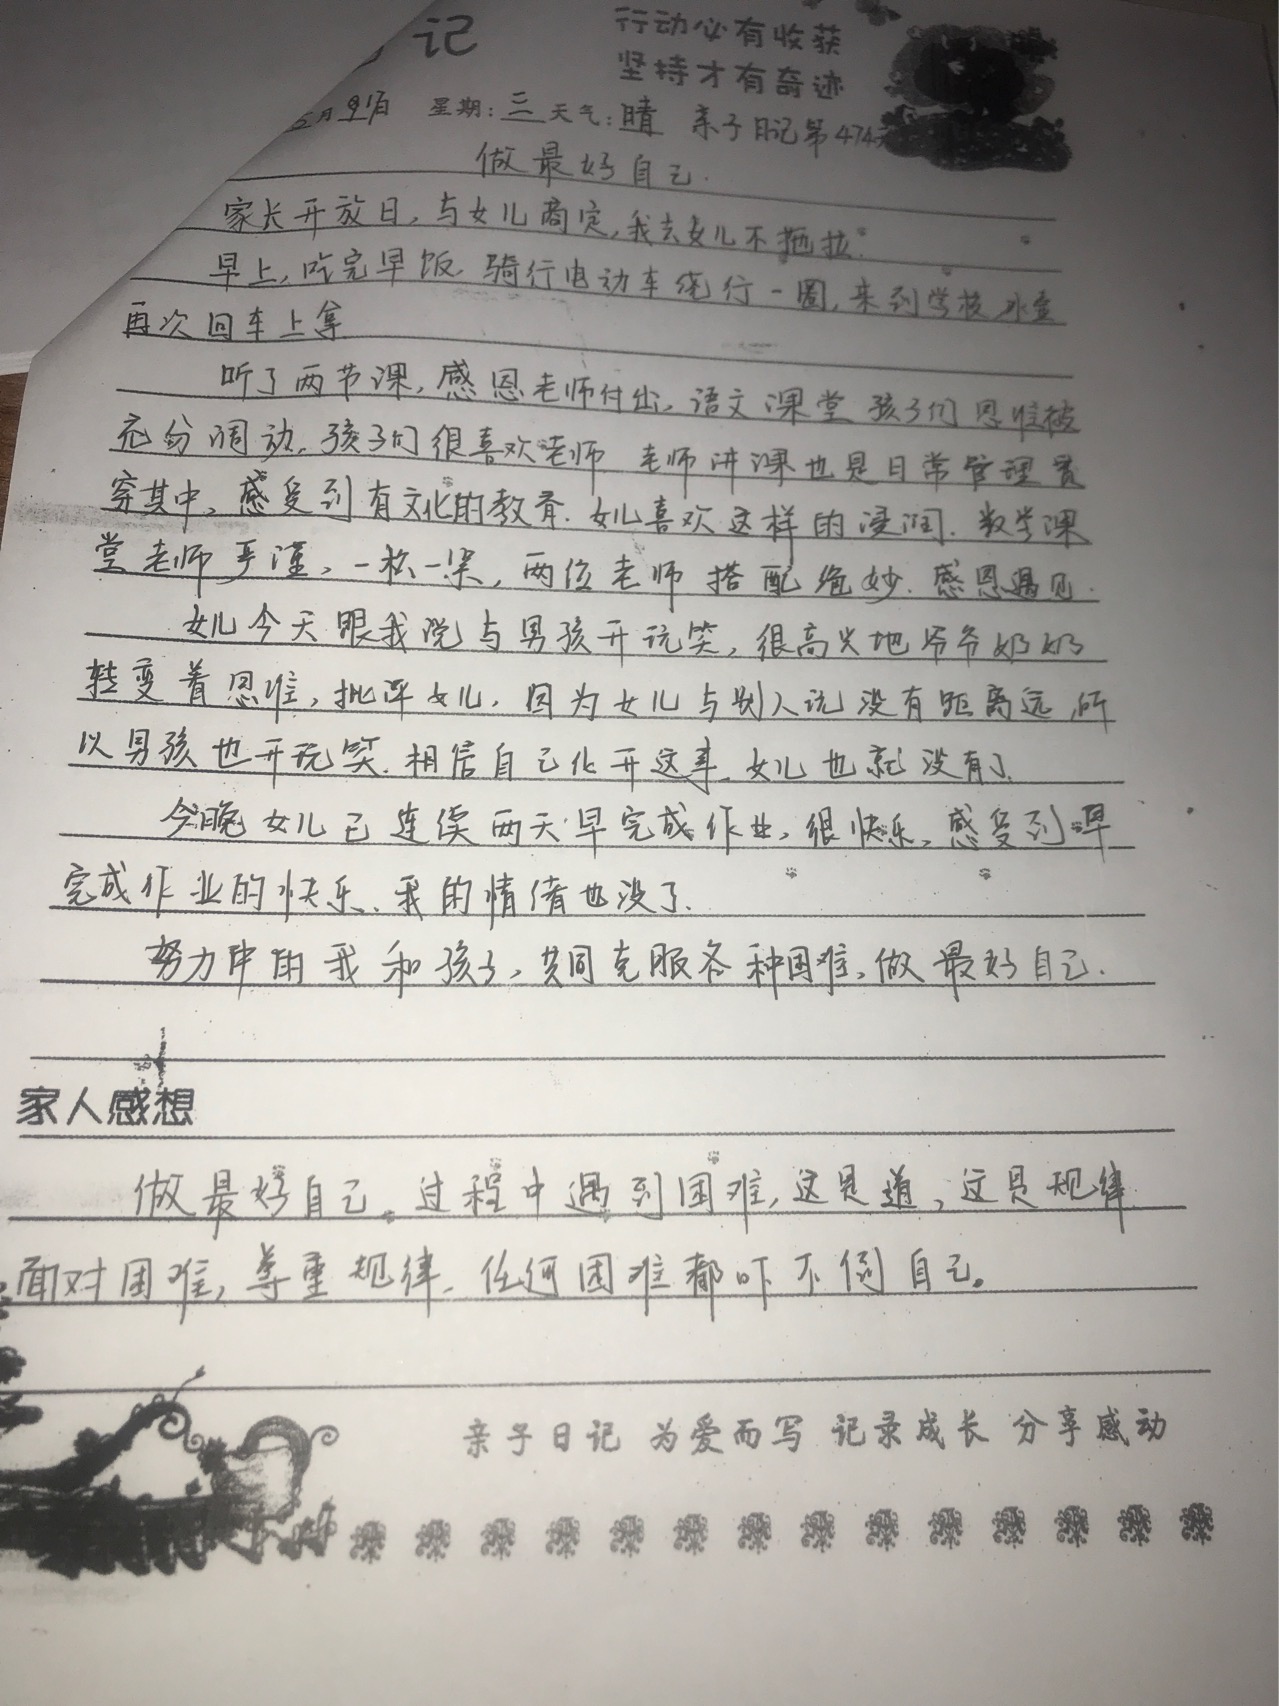 记
行动必有收获
坚持才有奇迹
月 日 星期:三 天气:晴 亲子日记第474天
做最好自己.
家长开放日,与女儿商定,我去女儿不拖拉.
早上,吃完早饭.骑行电动车绕行一圈,来到学校 水壶
再次回车上拿
听了两节课,感恩老师付出.语文课堂孩子们思维被
充分调动.孩子们很喜欢老师 老师讲课也是日常管理贯
穿其中,感受到有文化的教育.女儿喜欢这样的浸润.数学课
堂老师严谨,一板一眼,两位老师搭配绝妙.感恩遇见.
女儿今天跟我说与男孩开玩笑,很高兴地爷爷奶奶
转变着思维,批评女儿,因为女儿与别人说没有距离远,所
以男孩也开玩笑.相信自己化开这事.女儿也就没有了.
今晚女儿已连续两天早完成作业,很快乐,感受到早
完成作业的快乐.我的情绪也没了.
努力中的我和孩子,共同克服各种困难,做最好自己.
家人感想
做最好自己。过程中遇到困难,这是道,这是规律
面对困难,尊重规律.任何困难都吓不倒自己。
亲子日记 为爱而写 记录成长 分享感动